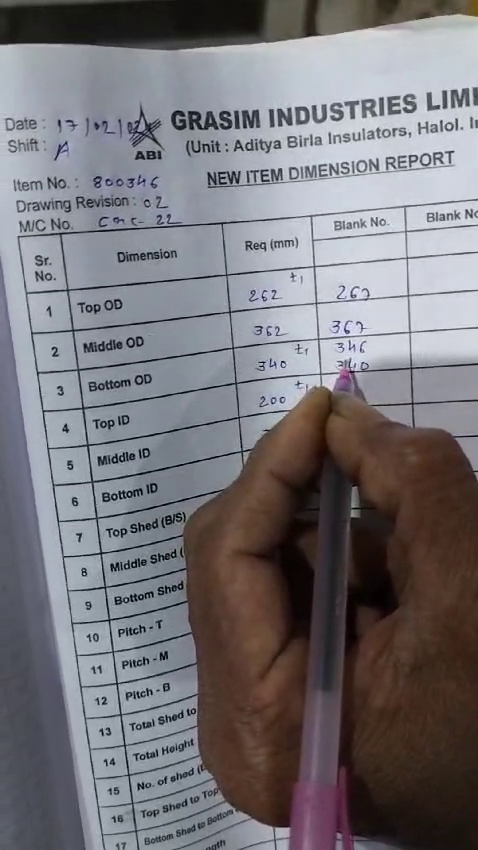 Date : 17/02/02
GRASIM INDUSTRIES LIMI
Shift : A
ABI
(Unit : Aditya Birla Insulators, Halol. In
Item No. : 800346
NEW ITEM DIMENSION REPORT
Drawing Revision : 02
M/C No. CNC-22
Sr. No. Dimension Req (mm) Blank No. Blank No
1 Top OD 262 ±1 267
2 Middle OD 362 367
346
3 Bottom OD 340 ±1 340
4 Top ID 200 ±1
5 Middle ID
6 Bottom ID
7 Top Shed (B/S)
8 Middle Shed (
9 Bottom Shed
10 Pitch - T
11 Pitch - M
12 Pitch - B
13 Total Shed to
14 Total Height
15 No. of shed (
16 Top Shed to Top
17 Bottom Shed to Bottom